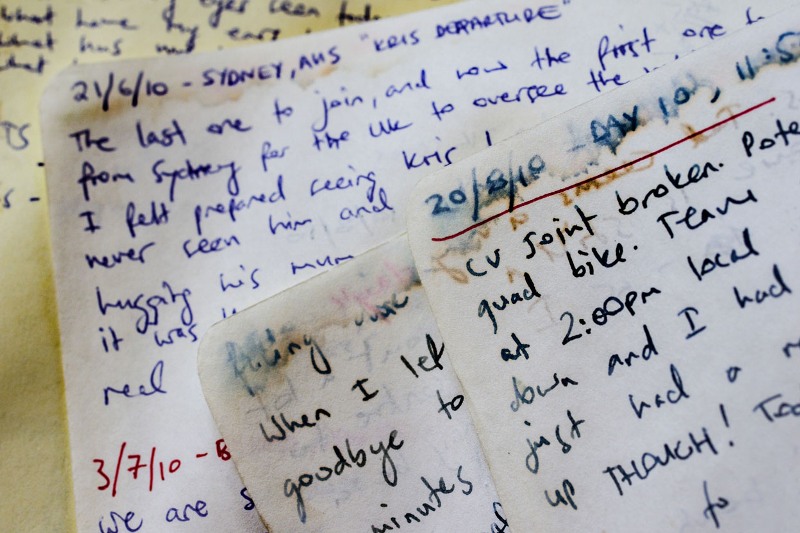 what have my eyes seen
what has my ears
what
21/6/10 - SYDNEY, AUS "KRIS DEPARTURE"
The last one to join, and now the first one
from Sydney for the UK to oversee the
I felt prepared seeing Kris
never seen him and
hugging his mum
it was
real
3/7/10 - B
we are s
filling
When I let
goodbye to
minutes
20/8/10 - DAY 10, 11:5
CV Joint broken. Pote
quad bike. Team
at 2:00pm local
down and I had
just had a
up THOUGH! Too
to